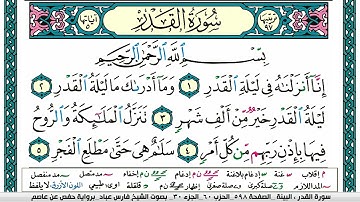 سُورَةُ الْقَدْرِ
بِسْمِ ٱللَّهِ ٱلرَّحْمَٰنِ ٱلرَّحِيمِ
إِنَّآ أَنزَلْنَٰهُ فِى لَيْلَةِ ٱلْقَدْرِ ١ وَمَآ أَدْرَىٰكَ مَا لَيْلَةُ ٱلْقَدْرِ ٢
لَيْلَةُ ٱلْقَدْرِ خَيْرٌ مِّنْ أَلْفِ شَهْرٍ ٣ تَنَزَّلُ ٱلْمَلَٰٓئِكَةُ وَٱلرُّوحُ
فِيهَا بِإِذْنِ رَبِّهِم مِّن كُلِّ أَمْرٍ ٤ سَلَٰمٌ هِىَ حَتَّىٰ مَطْلَعِ ٱلْفَجْرِ
سورة القدر ، البينة الصفحة ٥٩٨ الحزب ٦٠ الجزء ٣٠ بصوت الشيخ فارس عباد برواية حفص عن عاصم